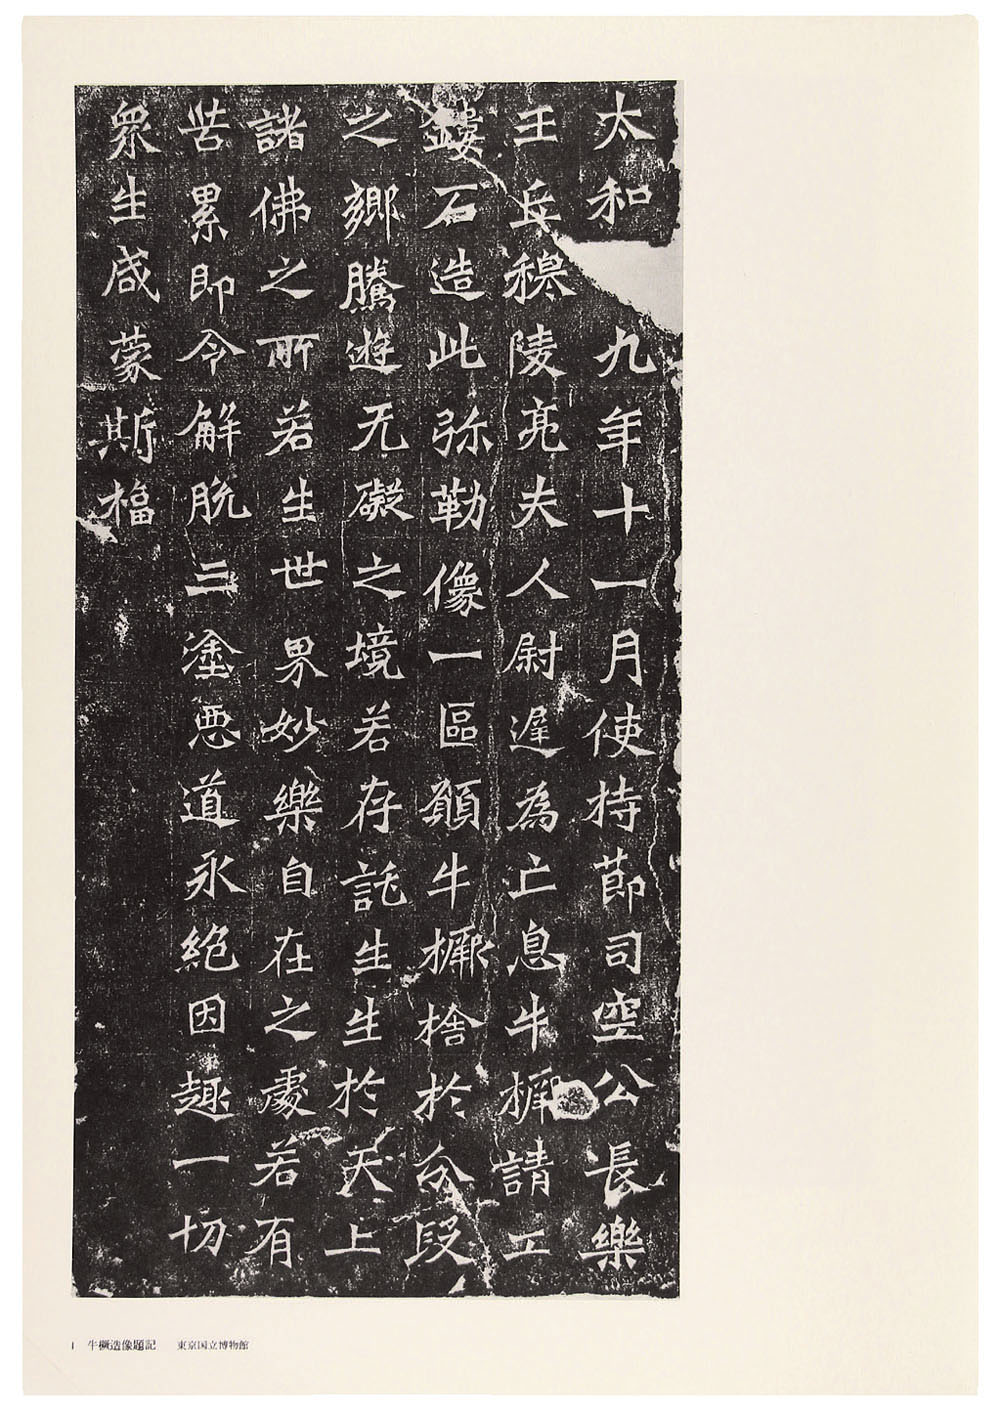 太和九年十一月使持莭司空公長樂
王丘穆陵亮夫人尉遲為亡息牛橛請工
鏤石造此弥勒像一區願牛橛捨於分段
之鄉騰遊无礙之境若存託生生於天上
諸佛之所若生世界妙樂自在之處若有
苦累即令解脱三塗惡道永絶因趣一切
眾生咸蒙斯福
1 牛橛造像題記 東京国立博物館